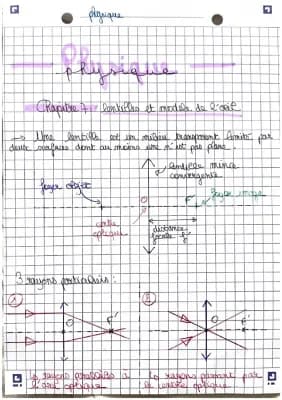 physique
Physique
Chapitre 7 lentilles et modèle de l'œil
→ Une lentille est un milieu transparent limité par
deux surfaces dont au moins une n'est pas plane.
lentille mince
convergente
foyer objet
foyer image
O
F'
centre
optique
distance
focale f'
3 rayons particuliers :
O
F'
O
F'
↳ rayons parallèles à
l'axe optique
↳ rayons passant par
le centre optique